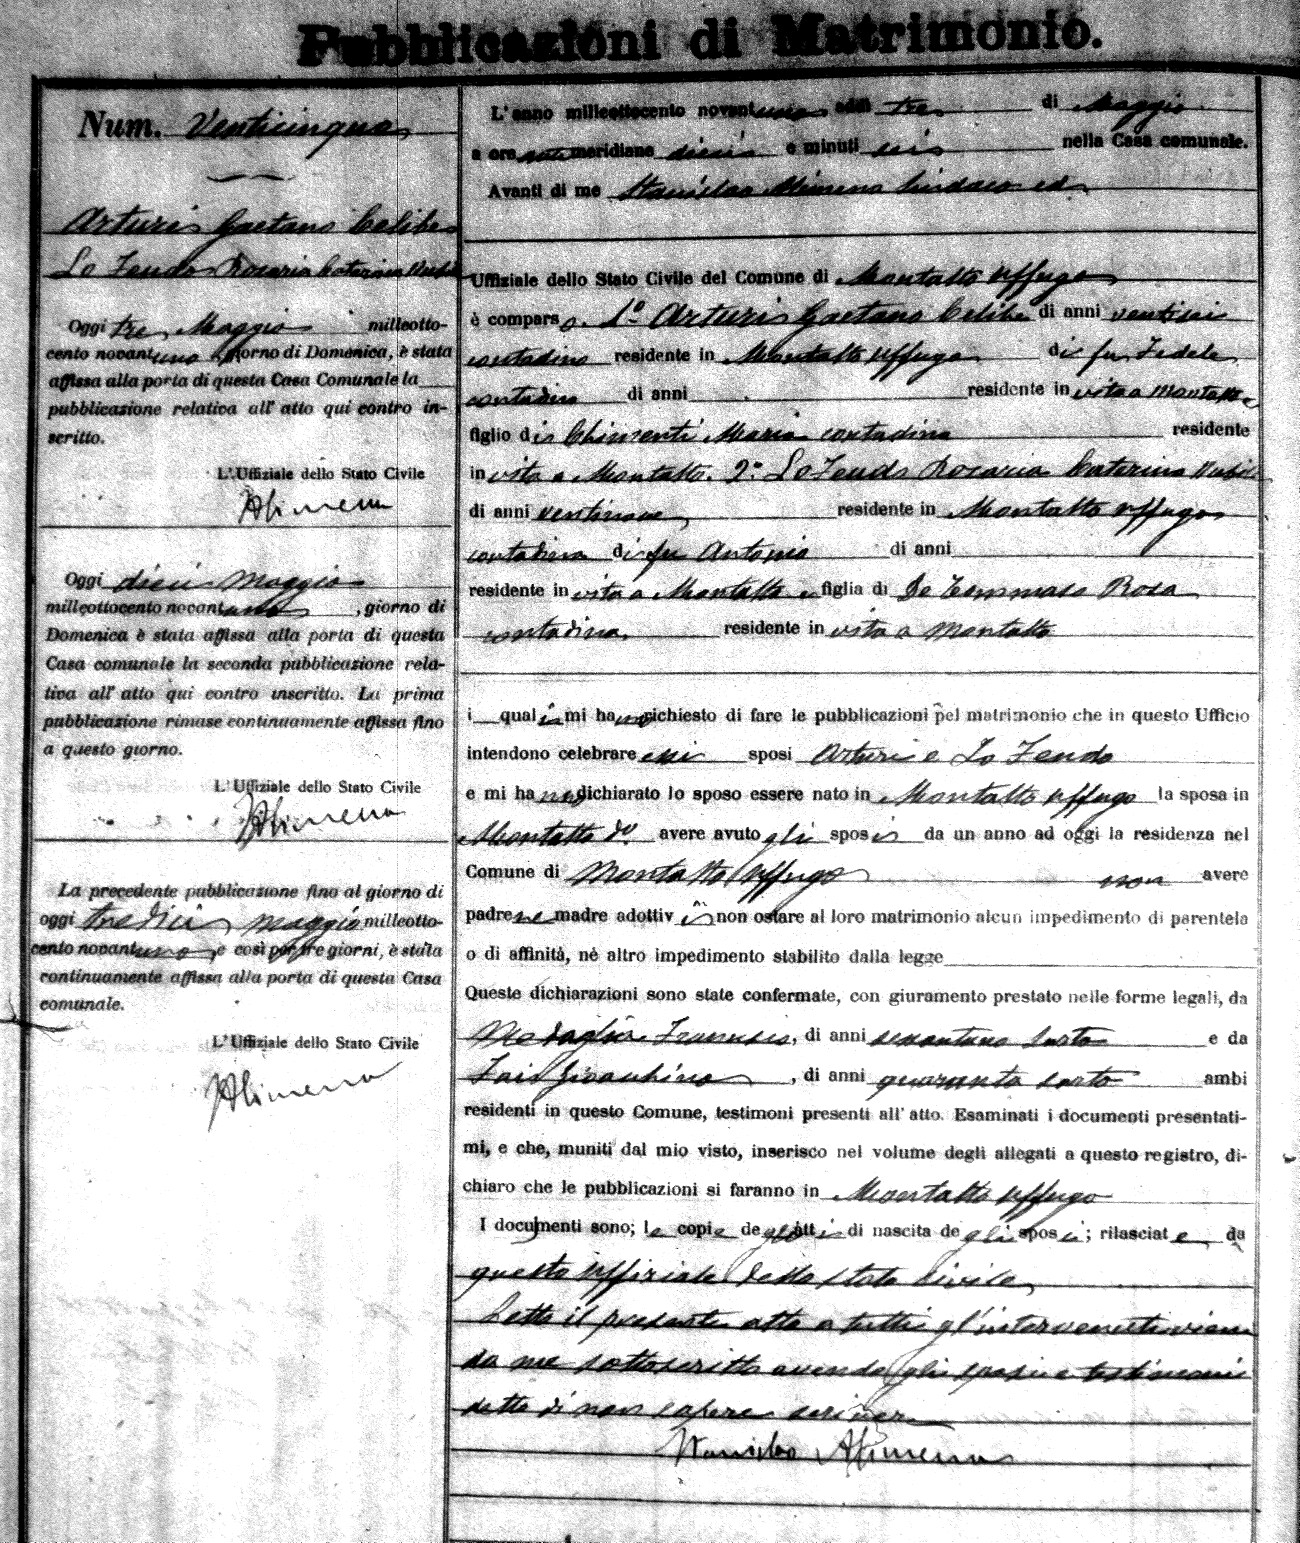 Pubblicazioni di Matrimonio.
Num. Venticinque
Arturi Gaetano Celibe
Lo Feudo Rosaria Caterina Nubile
Oggi tre Maggio milleotto-
cento novantuno giorno di Domenica, è stata
affissa alla porta di questa Casa Comunale la
pubblicazione relativa all' atto qui contro in-
scritto.
L'Uffiziale dello Stato Civile
Alimena
Oggi dieci Maggio
milleottocento novantuno, giorno di
Domenica è stata affissa alla porta di questa
Casa comunale la seconda pubblicazione rela-
tiva all' atto qui contro inscritto. La prima
pubblicazione rimase continuamente affissa fino
a questo giorno.
L'Uffiziale dello Stato Civile
Alimena
La precedente pubblicazione fino al giorno di
oggi tredici maggio milleotto-
cento novantuno, e così per tre giorni, è stata
continuamente affissa alla porta di questa Casa
comunale.
L'Uffiziale dello Stato Civile
Alimena
L'anno milleottocento novantuno, addì tre di Maggio
a ore antemeridiane dieci e minuti sei nella Casa comunale.
Avanti di me Stanislao Alimena Sindaco ed
Uffiziale dello Stato Civile del Comune di Montalto Uffugo
è comparso. 1º Arturi Gaetano Celibe di anni ventisei
contadino residente in Montalto Uffugo di fu Fedele
contadino di anni residente in vita a Montalto e
figlio di Chimenti Maria contadina residente
in vita a Montalto. 2º Lo Feudo Rosaria Caterina Nubile
di anni ventinove, residente in Montalto Uffugo
contadina di fu Antonio di anni
residente in vita a Montalto e figlia di De Tommaso Rosa
contadina, residente in vita a Montalto
i quali mi hanno richiesto di fare le pubblicazioni pel matrimonio che in questo Ufficio
intendono celebrare essi sposi Arturi e Lo Feudo
e mi hanno dichiarato lo sposo essere nato in Montalto Uffugo la sposa in
Montalto dº. avere avuto gli sposi da un anno ad oggi la residenza nel
Comune di Montalto Uffugo non avere
padre ne madre adottivi non ostare al loro matrimonio alcun impedimento di parentela
o di affinità, nè altro impedimento stabilito dalla legge
Queste dichiarazioni sono state confermate, con giuramento prestato nelle forme legali, da
Medaglia Francesco, di anni sessantuno sarto e da
Gioacchino, di anni quaranta sarto ambi
residenti in questo Comune, testimoni presenti all' atto. Esaminati i documenti presentati-
mi, e che, muniti dal mio visto, inserisco nel volume degli allegati a questo registro, di-
chiaro che le pubblicazioni si faranno in Montalto Uffugo
I documenti sono; le copie degli atti di nascita degli sposi; rilasciate da
questo Uffiziale dello stato civile,
Letto il presente atto a tutti gl'intervenuti vien
da me sottoscritto avendo gli sposi e testimoni
detto di non sapere scrivere
Stanislao Alimena